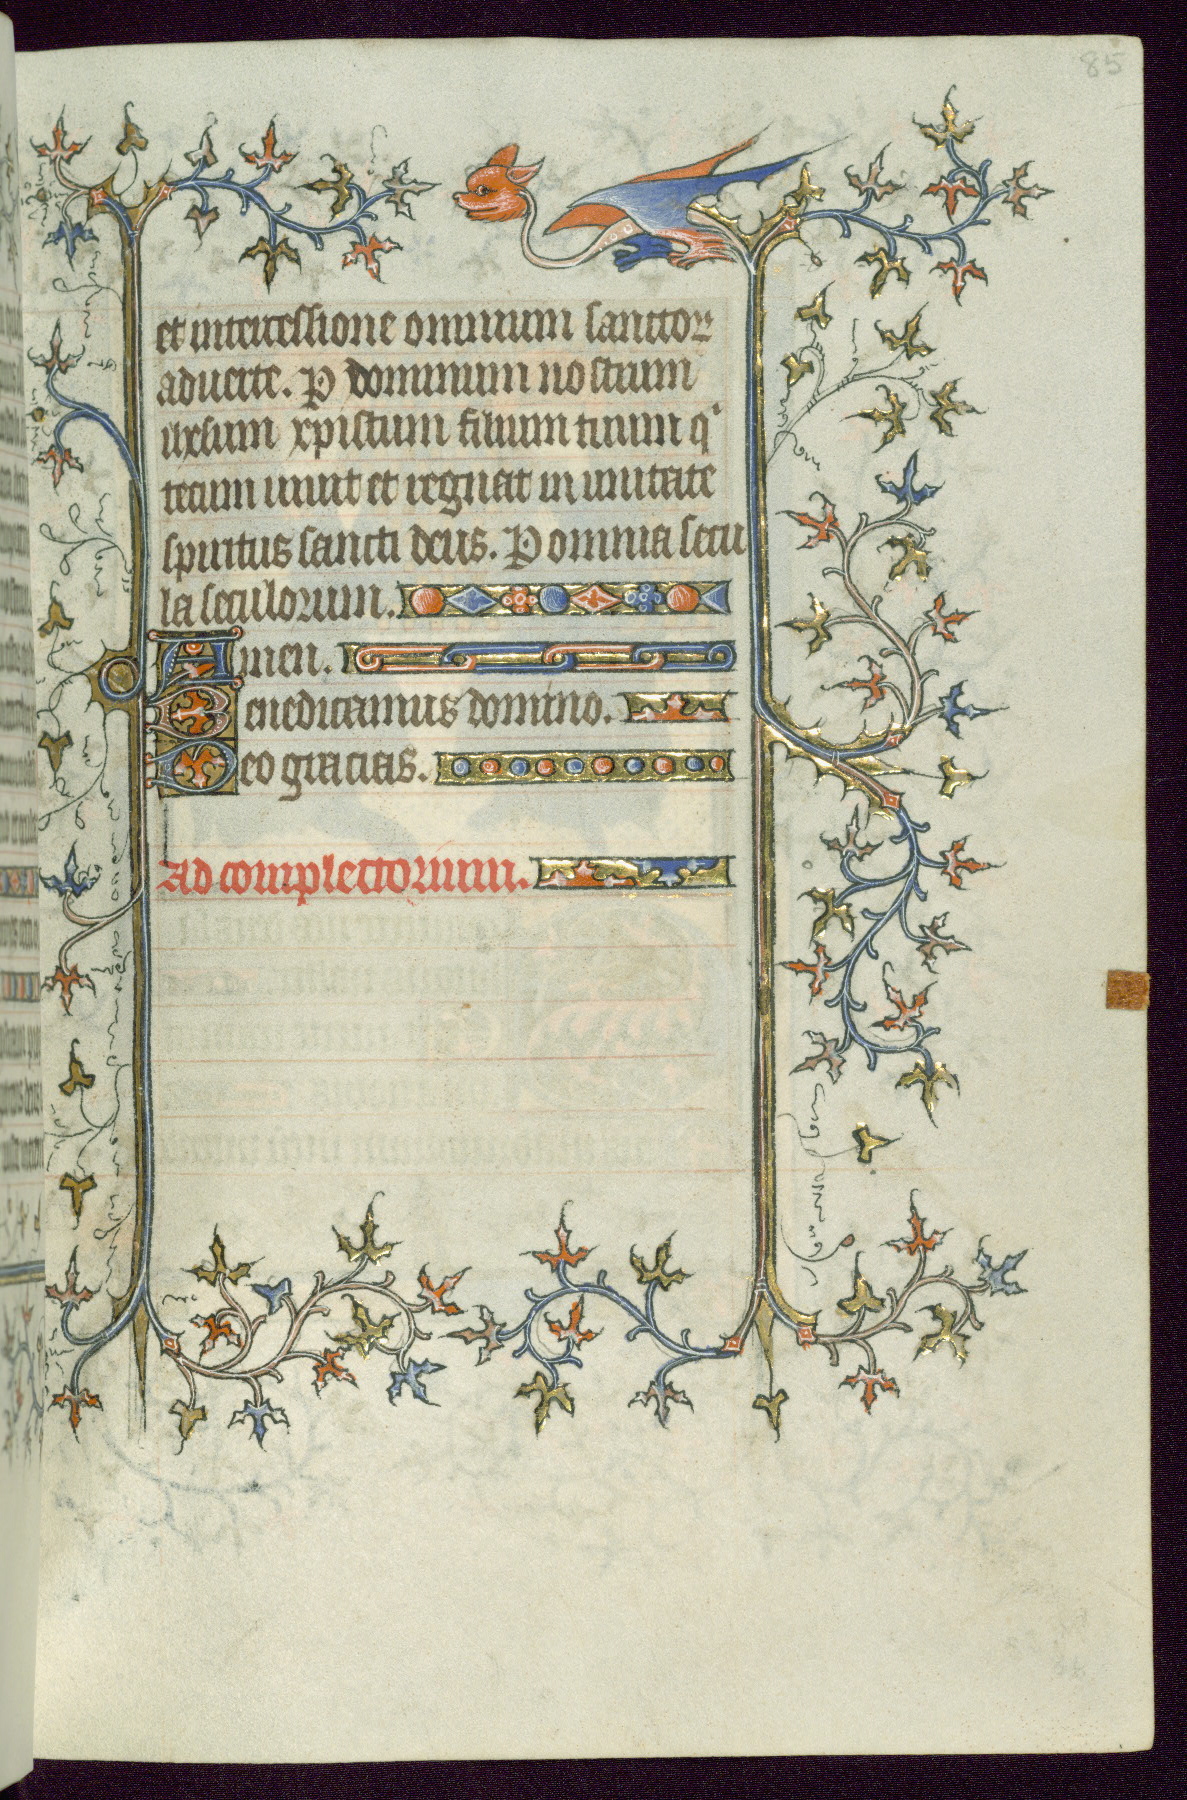 85
et intercessione omnium sanctor
aduerte. P dominum nostrum
ihesum xpistum filium tuum q
tecum uiuit et regnat in unitate
spiritus sancti deus. P omnia secu
la seculorum.
Amen.
Benedicamus domino.
Deo gracias.
Ad complectorium.